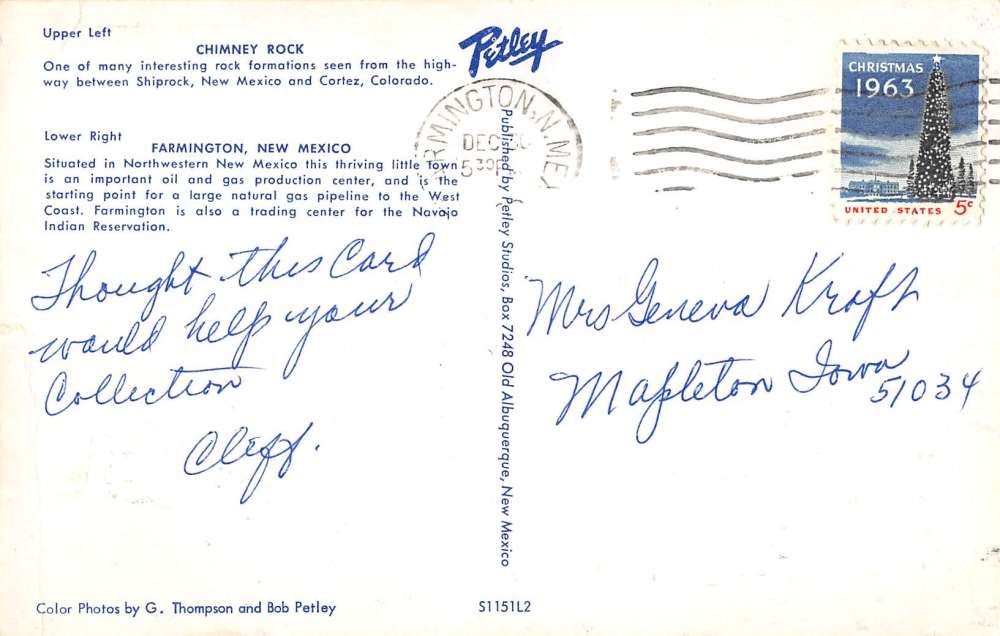 Upper Left
CHIMNEY ROCK
One of many interesting rock formations seen from the high-
way between Shiprock, New Mexico and Cortez, Colorado.
Lower Right
FARMINGTON, NEW MEXICO
Situated in Northwestern New Mexico this thriving little Town
is an important oil and gas production center, and is the
starting point for a large natural gas pipeline to the West
Coast. Farmington is also a trading center for the Navajo
Indian Reservation.
Thought this Card
would help your
Collection
Cliff.
Color Photos by G. Thompson and Bob Petley
Petley
Published by Petley Studios, Box 7248 Old Albuquerque, New Mexico
S1151L2
ARMINGTON, N. MEX
DEC
CHRISTMAS
1963
UNITED STATES 5c
Mrs Geneva Kraft
Mapleton Iowa
51034